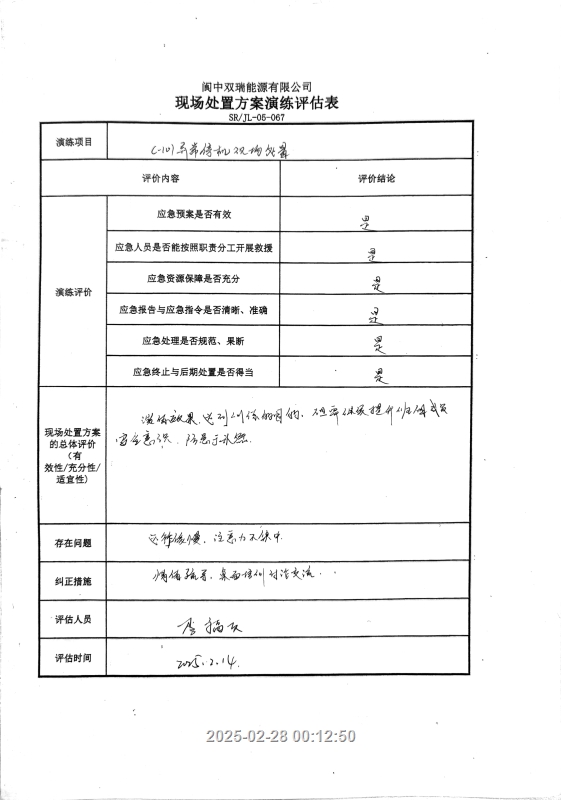 阆中双瑞能源有限公司
现场处置方案演练评估表
SR/JL-05-067
演练项目
C-101异常停机现场处置
评价内容
评价结论
演练评价
应急预案是否有效
是
应急人员是否能按照职责分工开展救援
是
应急资源保障是否充分
是
应急报告与应急指令是否清晰、准确
是
应急处理是否规范、果断
是
应急终止与后期处置是否得当
是
现场处置方案
的总体评价
（有
效性/充分性/
适宜性）
演练效果达到训练的目的,
继续提升班组成员
安全意识、防患于未然.
存在问题
缓慢、注意力不集中.
纠正措施
情绪疏导、桌面培训讨论交流.
评估人员
评估时间
2025.2.14.
2025-02-28 00:12:50